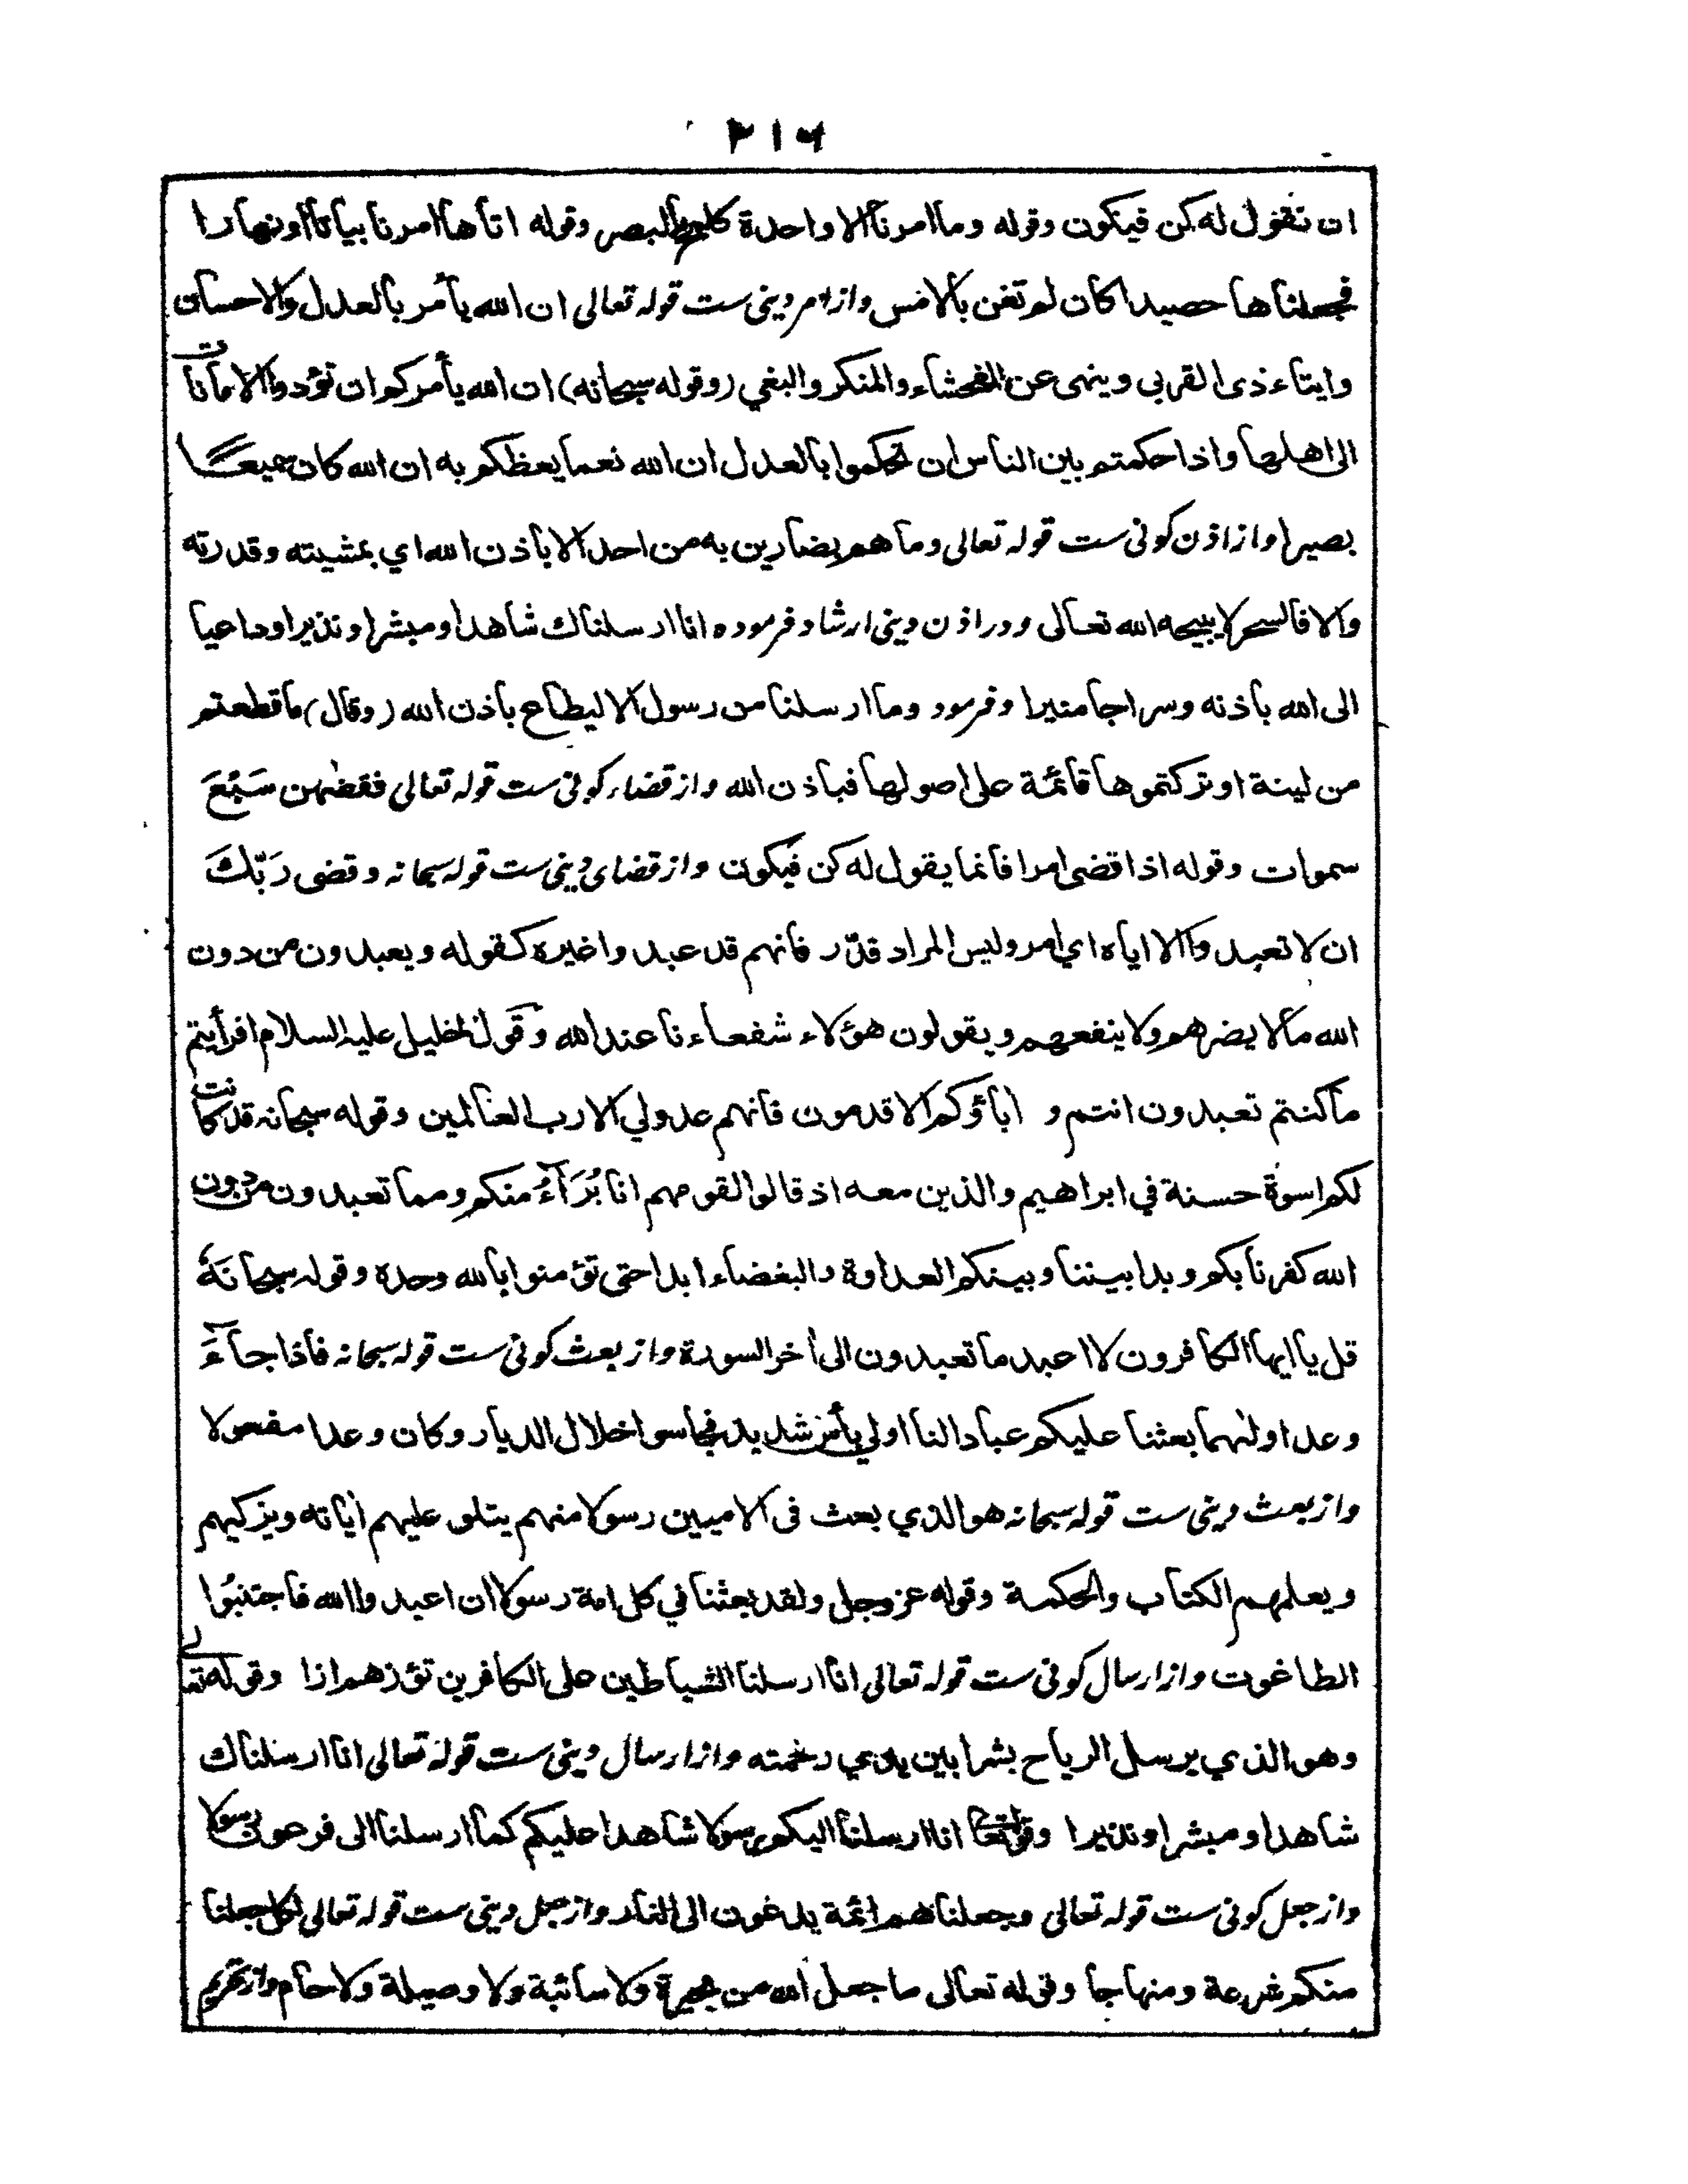 ٢١٦
ان نقول له كن فيكون وقوله وما امرنا الا واحدة كلمح بالبصر وقوله اتاها امرنا بياتا او نهارا
فجعلناها حصيدا كان لم تغن بالامس واز امر دينى ست قوله تعالى ان الله يأمر بالعدل والاحسان
وايتاء ذى القربى وينهى عن الفحشاء والمنكر والبغي (وقوله سبحانه) ان الله يأمركم ان تؤدوا الامانات
الى اهلها واذا حكمتم بين الناس ان تحكموا بالعدل ان الله نعما يعظكم به ان الله كان سميعـــا
بصيرا واز اذن كونى ست قوله تعالى وما هم بضارين به من احد الا باذن الله اي بمشيته وقدرته
والا فالسحر لا يبيحه الله تعالى ودر اذن دينى ارشاد فرموده انا ارسلناك شاهدا ومبشرا ونذيرا وداعيا
الى الله باذنه وسراجا منيرا وفرمود وما ارسلنا من رسول الا ليطاع باذن الله (وقال) ما قطعتم
من لينة او تركتموها قائمة على اصولها فباذن الله واز قضاء كونى ست قوله تعالى فقضٰهن سَبْعَ
سموات وقوله اذا قضى امرا فانما يقول له كن فيكون واز قضاى دينى ست قوله سبحانه وقضى رَبّكَ
ان لا تعبدوا الا اياه اي امر وليس المراد قدّر فانهم قد عبدوا غيره كقوله ويعبدون من دون
الله ما لا يضرهم ولا ينفعهم ويقولون هؤلاء شفعاءنا عند الله وقول الخليل عليه السلام افرأيتم
ما كنتم تعبدون انتم و اباؤكم الاقدمون فانهم عدولي الا رب العالمين وقوله سبحانه قد كانت
لكم اسوة حسنة في ابراهيم والذين معه اذ قالوا لقومهم انا بُرَآءُ منكم ومما تعبدون من دون
الله كفرنا بكم وبدا بيننا وبينكم العداوة والبغضاء ابدا حتى تؤمنوا بالله وحدة وقوله سبحانَهُ
قل يا ايها الكافرون لا اعبد ما تعبدون الى أخر السورة واز بعث كونى ست قوله سبحانه فاذا جآءَ
وعد اولٰهما بعثنا عليكم عبادا لنا اولي بأس شديد فجاسوا خلال الديار وكان وعدا مفعولا
واز بعث دينى ست قوله سبحانه هو الذي بعث فى الاميين رسولا منهم يتلو عليهم أياته ويزكيهم
ويعلمهم الكتاب والحكمة وقوله عز وجل ولقد بعثنا في كل امة رسولا ان اعبدوا الله فاجتنبُوا
الطاغوت واز ارسال كونى ست قوله تعالى انا ارسلنا الشياطين على الكافرين تؤذهم ازا وقوله تعالى
وهو الذي يرسل الرياح بشرا بين يدي رحمته واز ارسال دينى ست قوله تعالى انا ارسلناك
شاهدا ومبشرا ونذيرا وقوله تعا انا ارسلنا اليكم رسولا شاهدا عليكم كما ارسلنا الى فرعون رسولا
واز جعل كونى ست قوله تعالى وجعلناهم ائمة يدعون الى النار واز جعل دينى ست قوله تعالى لكل جعلنا
منكم شرعة ومنهاجا وقوله تعالى ما جعل الله من بحيرة ولا سائبة ولا وصيلة ولا حام واز تحريم